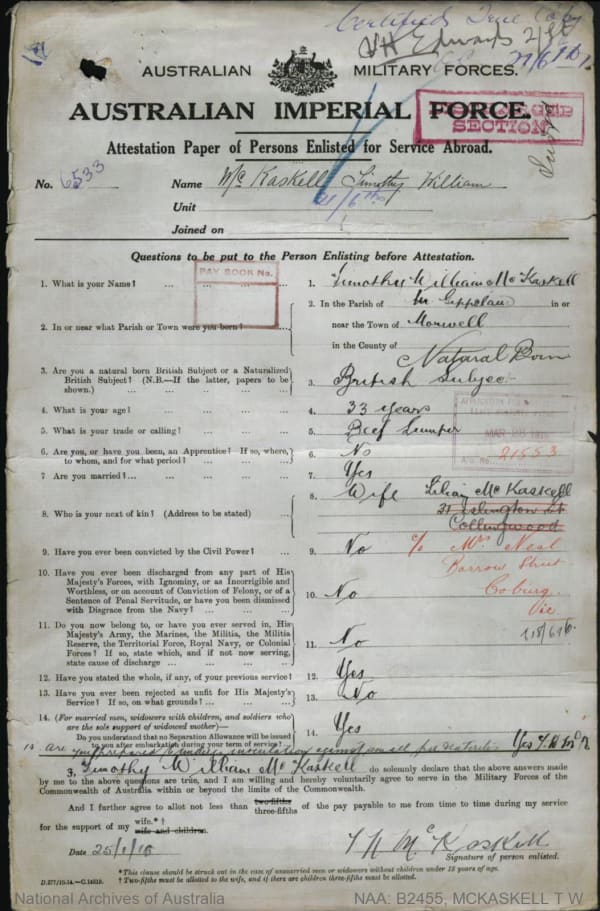 Certified True Copy
V H Edwards 2/Lt
27/6/16
AUSTRALIAN MILITARY FORCES.
AUSTRALIAN IMPERIAL FORCE.
DISCHARGED
SECTION
Attestation Paper of Persons Enlisted for Service Abroad.
No. 6533 Name McKaskell Timothy William
Unit
Joined on
Questions to be put to the Person Enlisting before Attestation.
PAY BOOK No.
1. What is your Name? ... ... ... ... 1. Timothy William McKaskell
2. In or near what Parish or Town were you born? ... 2. In the Parish of Gippsland in or
near the Town of Morwell
in the County of
3. Are you a natural born British Subject or a Naturalized
British Subject? (N.B.—If the latter, papers to be
shown.) ... ... ... ... 3. Natural Born
British Subject
4. What is your age? ... ... ... ... 4. 33 years
5. What is your trade or calling? ... ... ... 5. Beef Lumper
6. Are you, or have you been, an Apprentice? If so, where,
to whom, and for what period? ... ... ... 6. No
21553
7. Are you married? ... ... ... ... 7. Yes
8. Who is your next of kin? (Address to be stated) ... 8. Wife Lilian McKaskell
31 Islington St
Collingwood
c/o Mrs Neal
Barrow Street
Coburg
Vic
9. Have you ever been convicted by the Civil Power? ... 9. No
10. Have you ever been discharged from any part of His
Majesty's Forces, with Ignominy, or as Incorrigible and
Worthless, or on account of Conviction of Felony, or of a
Sentence of Penal Servitude, or have you been dismissed
with Disgrace from the Navy? ... ... ... 10. No
11. Do you now belong to, or have you ever served in, His
Majesty's Army, the Marines, the Militia, the Militia
Reserve, the Territorial Force, Royal Navy, or Colonial
Forces? If so, state which, and if not now serving,
state cause of discharge ... ... ... 11. No
12. Have you stated the whole, if any, of your previous service? 12. Yes
13. Have you ever been rejected as unfit for His Majesty's
Service? If so, on what grounds? ... ... 13. No
14. (For married men, widowers with children, and soldiers who
are the sole support of widowed mother)—
Do you understand that no Separation Allowance will be issued
to you after embarkation during your term of service? 14. Yes
15 Are you prepared to undergo inoculation against small pox & enteric Yes
I, Timothy William McKaskell do solemnly declare that the above answers made
by me to the above questions are true, and I am willing and hereby voluntarily agree to serve in the Military Forces of the
Commonwealth of Australia within or beyond the limits of the Commonwealth.
And I further agree to allot not less than two-fifths
three-fifths of the pay payable to me from time to time during my service
for the support of my wife.* †
wife and children.
Date 25/1/16 T W McKaskell
Signature of person enlisted.
*This clause should be struck out in the case of unmarried men or widowers without children under 18 years of age.
† Two-fifths must be allotted to the wife, and if there are children three-fifths must be allotted.
National Archives of Australia NAA: B2455, MCKASKELL T W